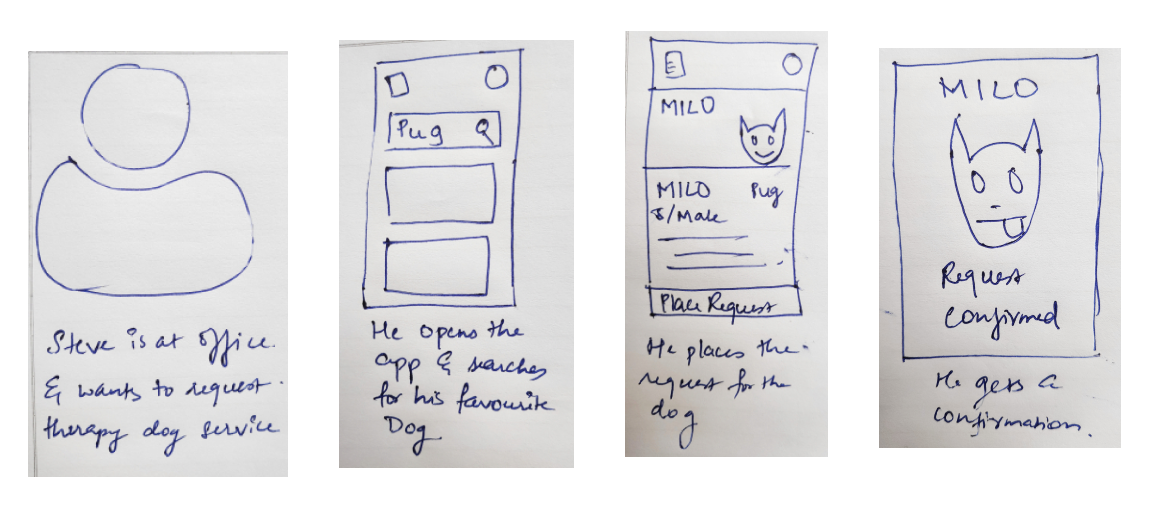 Steve is at office.
& wants to request
therapy dog service
Pug
He opens the
app & searches
for his favourite
Dog
MILO
MILO Pug
5/Male
Place Request
He places the
request for the
dog
MILO
Request
confirmed
He gets a
confirmation.